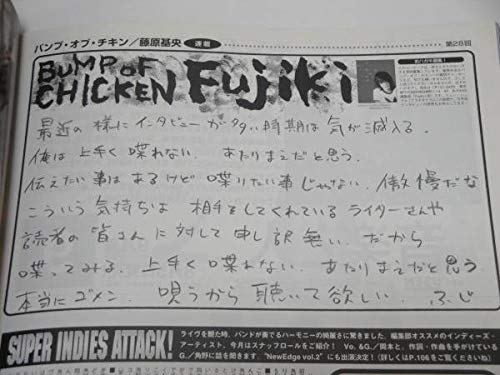 バンプ・オブ・チキン/藤原基央 連載 第28回
BUMP OF CHICKEN Fujiki
最近の様にインタビューが多い時期は気が滅入る。
俺は上手く喋れない。あたりまえだと思う。
伝えたい事はあるけど喋りたい事じゃない。傲慢だな
こういう気持ちは相手をしてくれているライターさんや
読者の皆さんに対して申し訳無い。だから
喋ってみる。上手く喋れない。あたりまえだと思う。
本当にゴメン。唄うから聴いて欲しい。ふじ
SUPER INDIES ATTACK!
ライヴを観た時、バンドが奏でるハーモニーの綺麗さに驚きました。編集部オススメのインディーズ・
アーティスト、今月はスナッフロールをご紹介! Vo. &G./岡本と、作詞・作曲を手がけている
G./角野に話を聞きます。"NewEdge vol.2" にも出演決定!(詳しくはP.106をご覧くださいね)